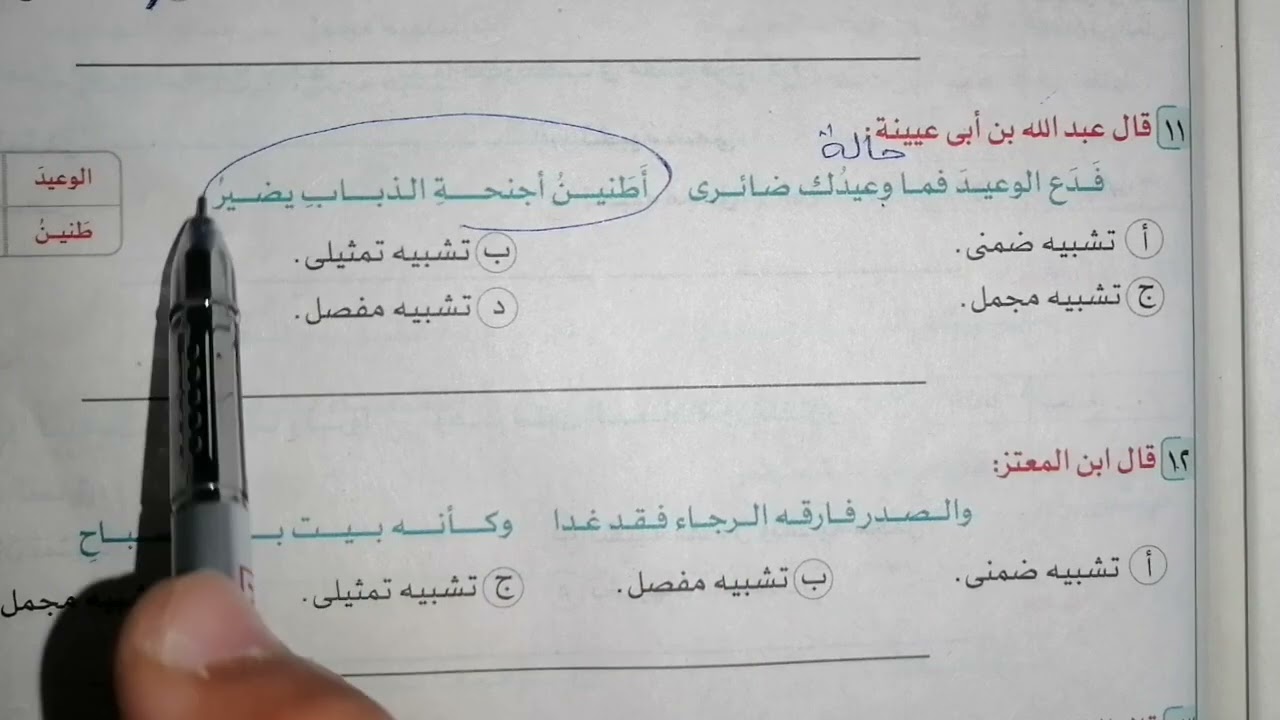 ١١ قال عبد الله بن أبى عيينة:
حالة
فَدَع الوعيدَ فما وعيدُك ضائرى أَطَنينُ أجنحةِ الذبابِ يضيرُ
الوعيدَ
طَنينُ
أ تشبيه ضمنى. ب تشبيه تمثيلى.
ج تشبيه مجمل. د تشبيه مفصل.
١٢ قال ابن المعتز:
والصدر فارقه الرجاء فقد غدا وكأنه بيت
أ تشبيه ضمنى. ب تشبيه مفصل. ج تشبيه تمثيلى. مجمل